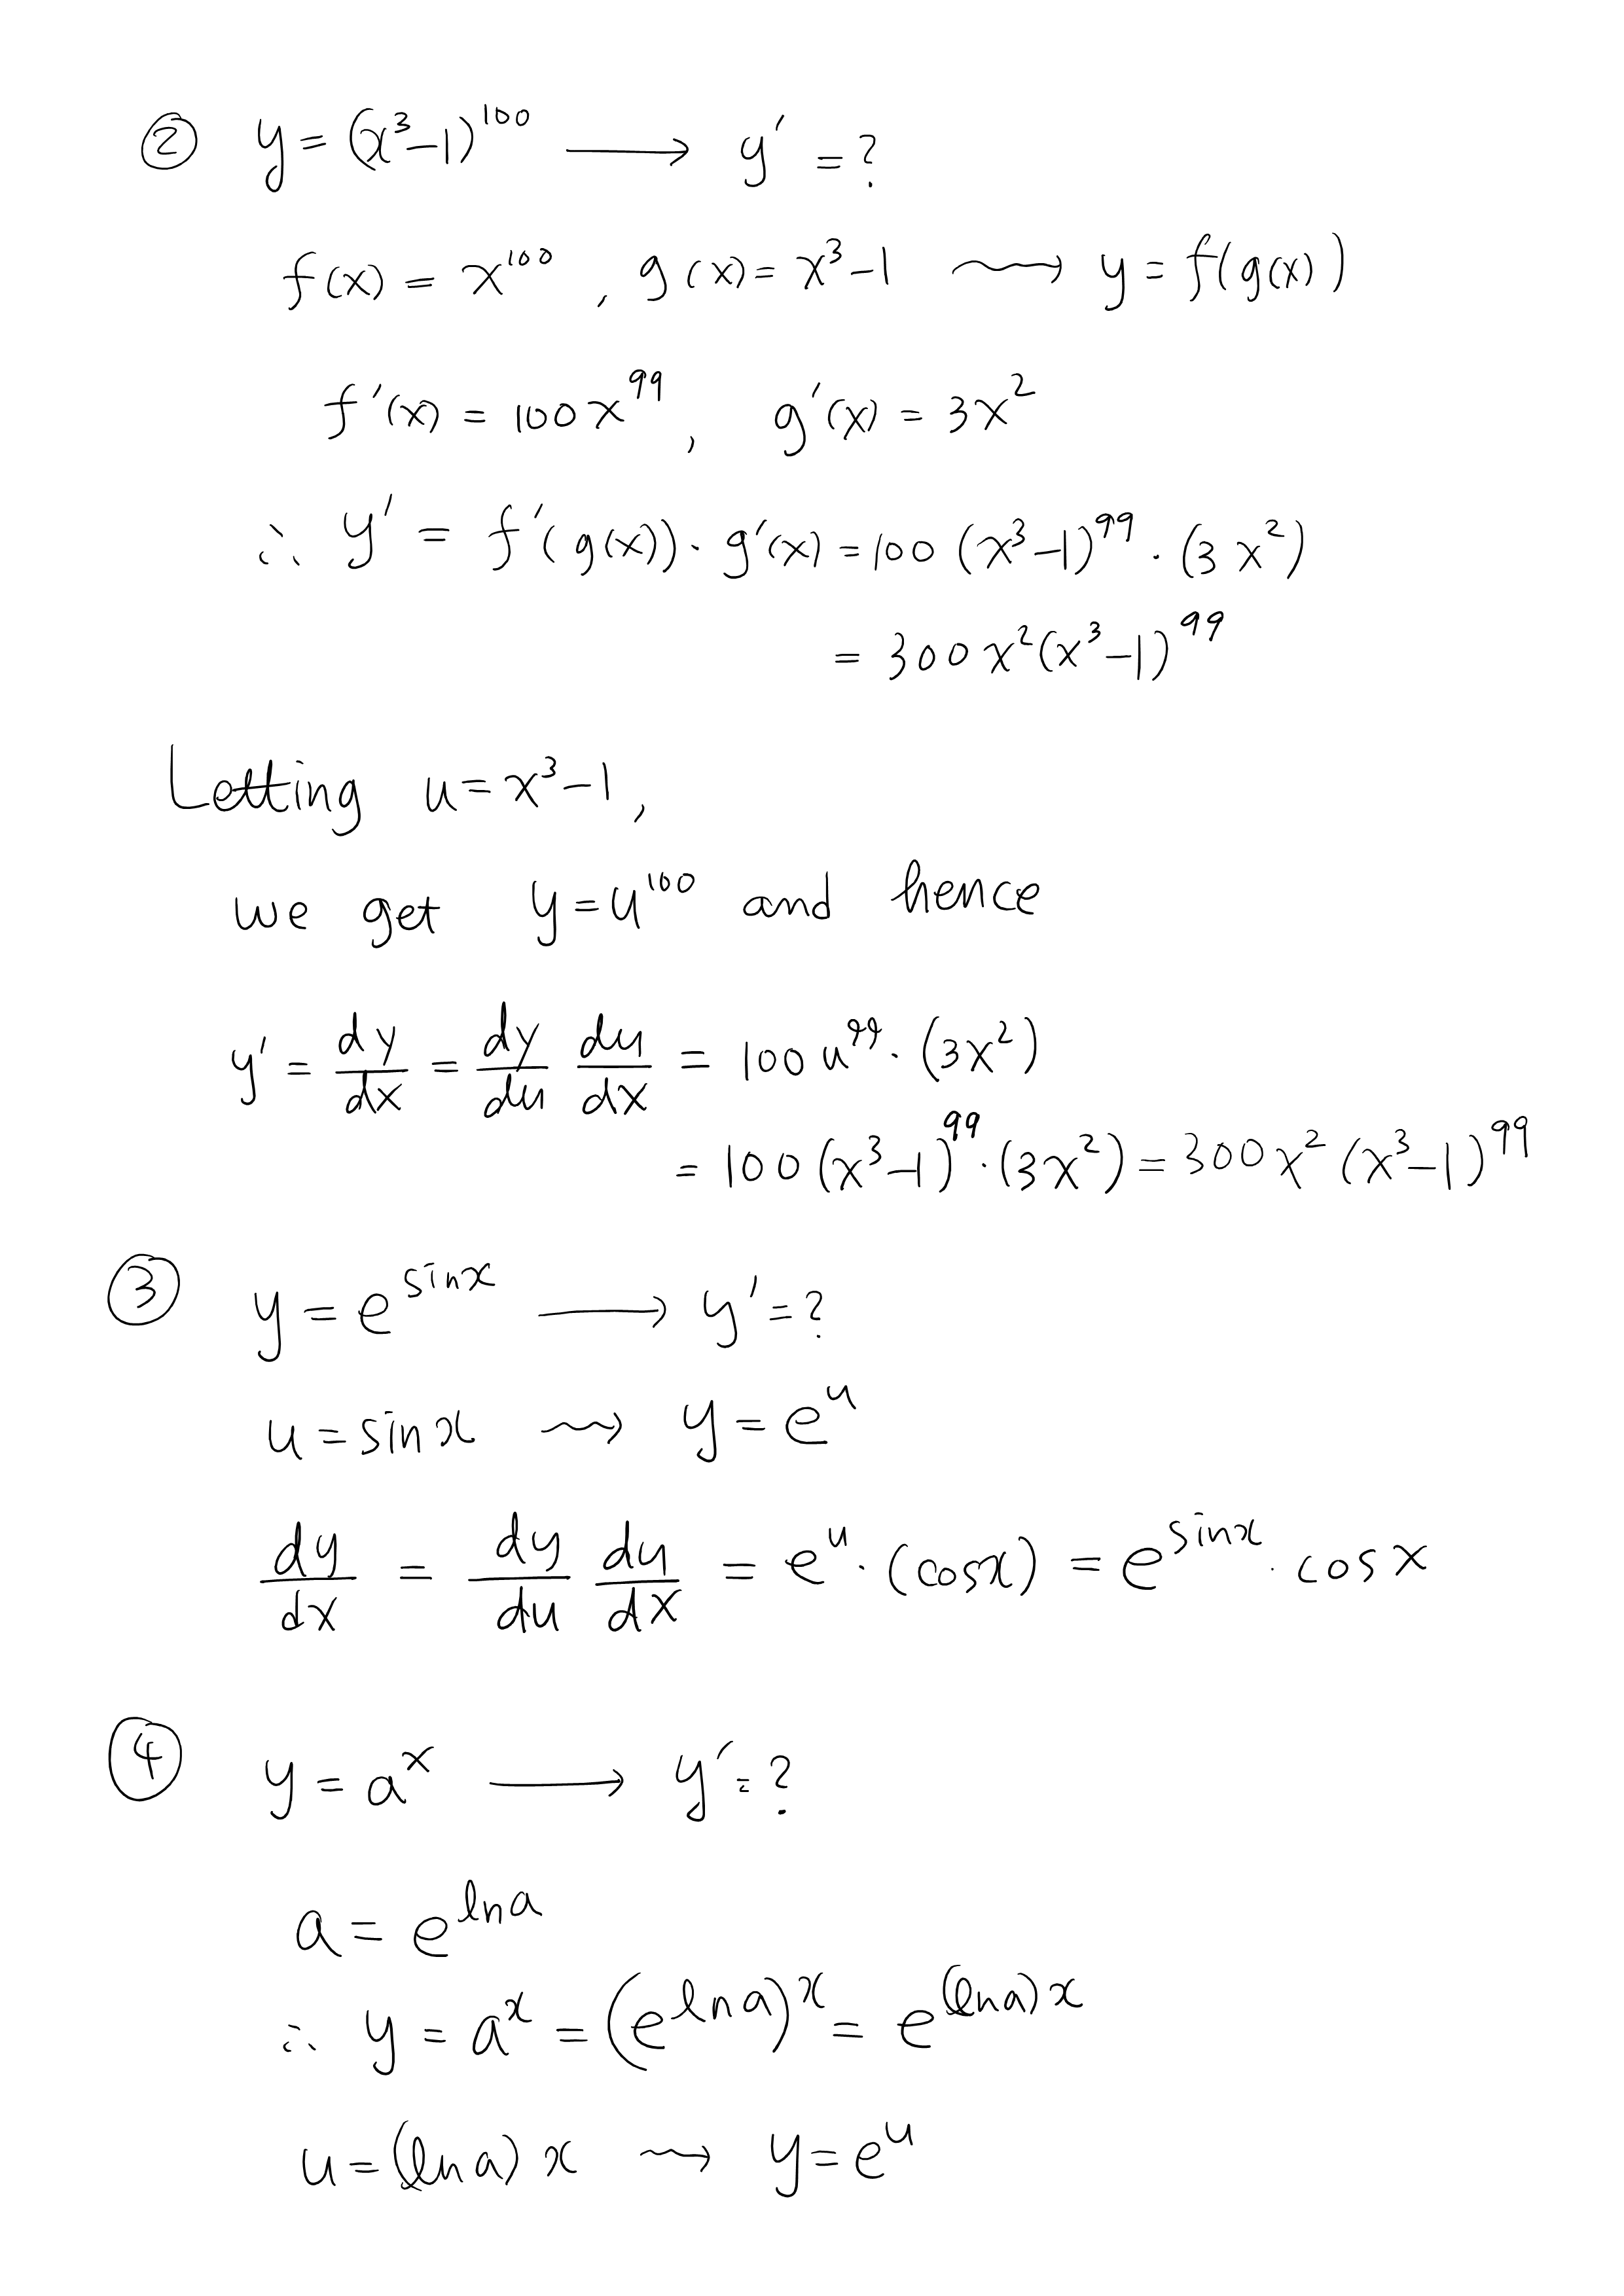 ② y = (x³-1)¹⁰⁰ ⟶ y' = ?
f(x) = x¹⁰⁰ , g(x) = x³-1 ⇝ y = f(g(x))
f'(x) = 100x⁹⁹ , g'(x) = 3x²
∴ y' = f'(g(x)) · g'(x) = 100 (x³-1)⁹⁹ · (3x²)
= 300x²(x³-1)⁹⁹
Letting u = x³-1 ,
we get y = u¹⁰⁰ and hence
y' = dy/dx = dy/du du/dx = 100u⁹⁹ · (3x²)
= 100(x³-1)⁹⁹ · (3x²) = 300x²(x³-1)⁹⁹
③ y = e^{sinx} ⟶ y' = ?
u = sinx ⇝ y = e^u
dy/dx = dy/du du/dx = e^u · (cosx) = e^{sinx} · cosx
④ y = a^x ⟶ y' = ?
a = e^{lna}
∴ y = a^x = (e^{lna})^x = e^{(lna)x}
u = (lna)x ⇝ y = e^u